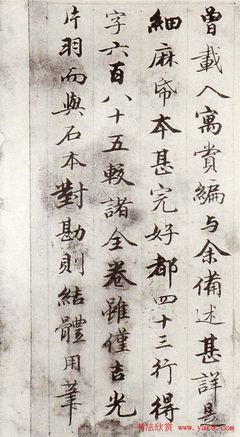 曾載入寓賞編与余備述甚詳是
細麻帋本甚完好都四十三行得
字六百八十五較諸全卷雖僅吉光
片羽而與石本對勘則結體用筆
书法欣赏 www.yac8.com